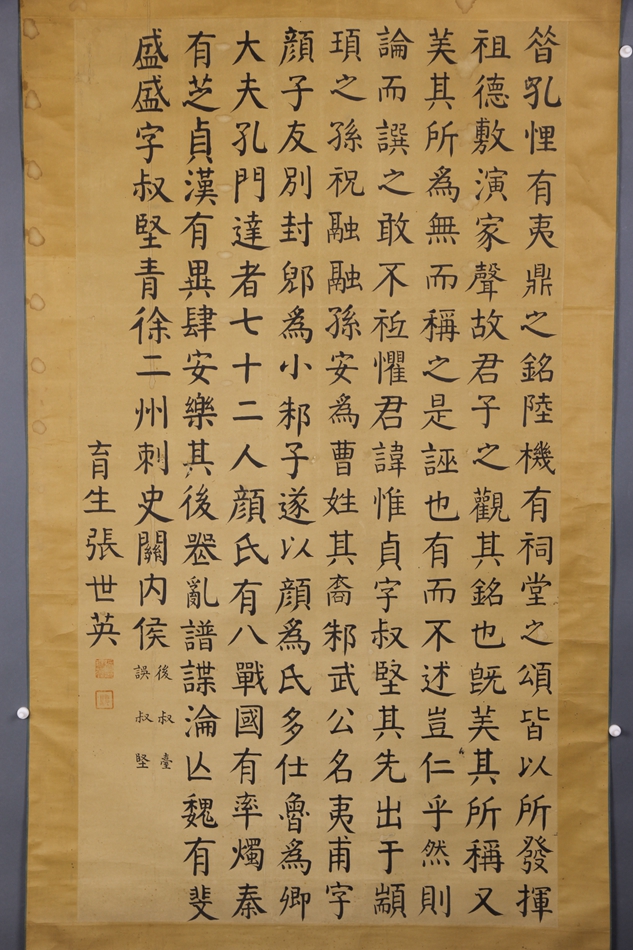 昔孔悝有夷鼎之銘陸機有祠堂之頌皆以所發揮
祖德敷演家聲故君子之觀其銘也既美其所稱又
美其所為無而稱之是誣也有而不述豈仁乎然則
論而譔之敢不祗懼君諱惟貞字叔堅其先出于顓
頊之孫祝融融孫安為曹姓其裔邾武公名夷甫字
顏子友別封郳為小邾子遂以顏為氏多仕魯為卿
大夫孔門達者七十二人顏氏有八戰國有率燭秦
有芝貞漢有異肆安樂其後喪亂譜諜淪亡魏有斐
盛盛字叔堅青徐二州刺史關內侯
後叔臺
誤叔堅
育生張世英